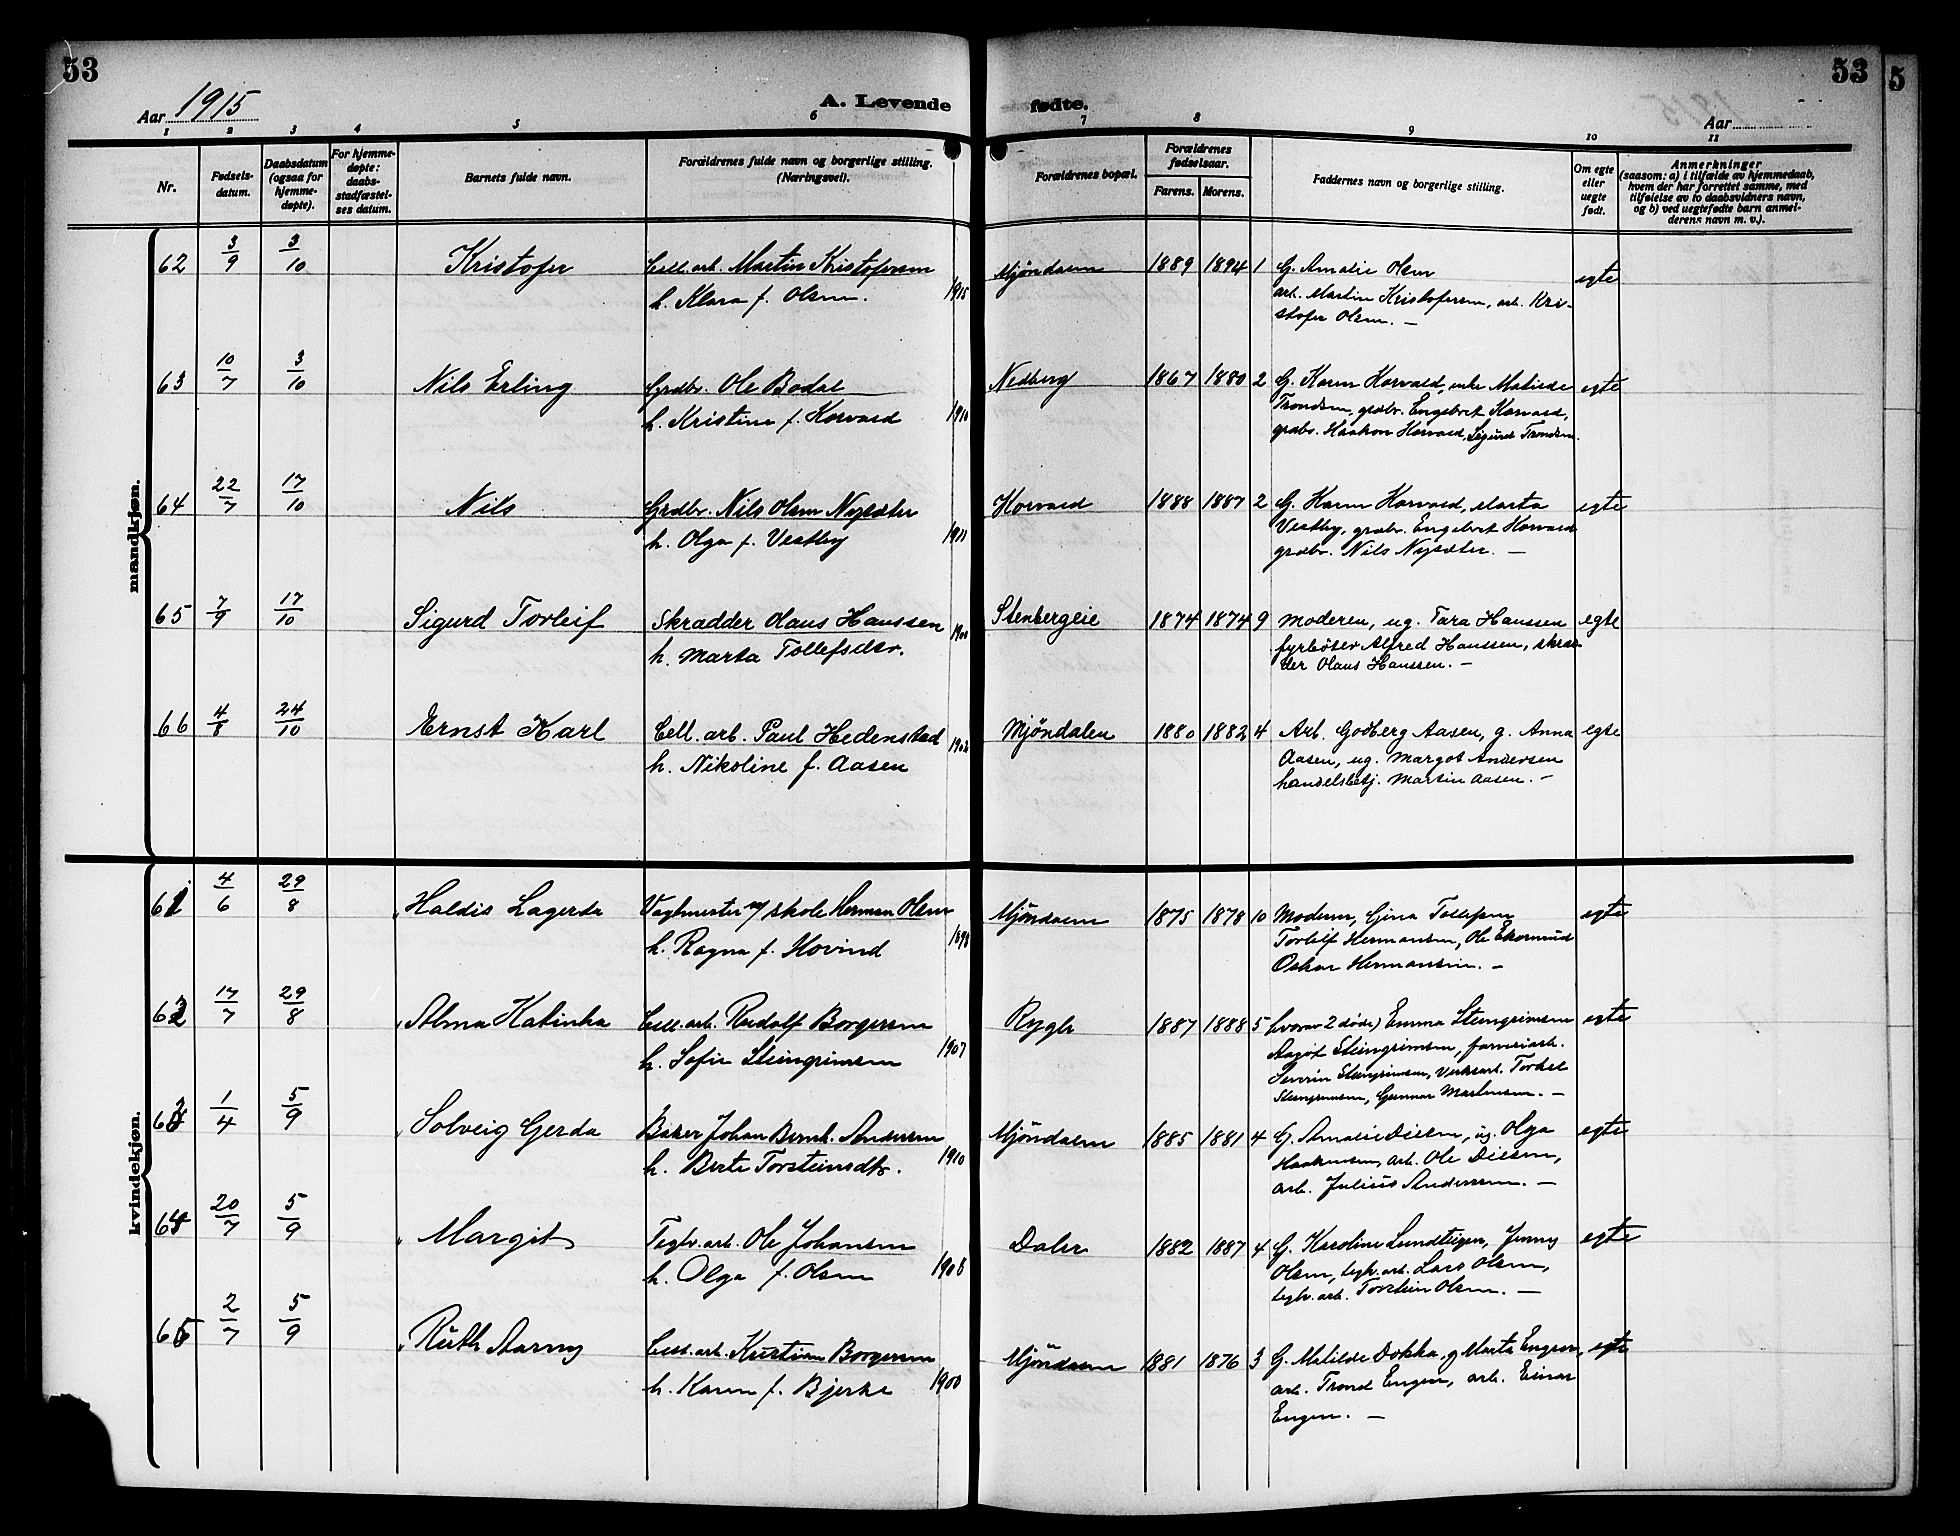 53
Aar 1915
A. Levende
1 2 3 4 5 6
Nr.
Fødsels-
datum.
Daabsdatum
(ogsaa for
hjemme-
døpte).
For hjemme-
døpte:
daabs-
stadfæstel-
ses datum.
Barnets fulde navn.
Forældrenes fulde navn og borgerlige stilling.
(Næringsvei).
53
5
fødte.
Aar
7 8 9 10 11
Forældrenes bopæl.
Forældrenes
fødselsaar.
Farens. Morens.
Faddernes navn og borgerlige stilling.
Om egte
eller
uegte
født.
Anmerkninger
(saasom: a) i tilfælde av hjemmedaab,
hvem der har forrettet samme, med
tilføielse av to daabsvidners navn,
og b) ved uegtefødte barn anmel-
derens navn m. v.).
mandkjøn.
62 3/9 3/10 Kristofer Cell. arb. Martin Kristofersen
h. Klara f. Olsen. 1915
Mjöndalen 1889 1894 1 G. Amalie Olsen egte
arb. Martin Kristofersen, arb. Kri-
stofer Olsen. —
63 10/7 3/10 Nils Erling Grdbr. Ole Bodal
h. Kristine f. Horvard 1910
Nedberg 1867 1880 2 G. Karen Horvard, enke Matilde egte
Trondsen, grdbr. Engebret Horvard,
grdbr. Haakon Horvard, Sigurd Trondsen.
64 22/7 17/10 Nils Grdbr. Nils Olsen Nysæter
h. Olga f. Vestby 1911
Horvard 1888 1887 2 G. Karen Horvard, Marta egte
Vestby, grdbr. Engebret Horvard
grdbr. Nils Nysæter. —
65 7/9 17/10 Sigurd Torleif Skrædder Olaus Hanssen
h. Marta Tollefsdtr. 1900
Stenbergeie 1874 1874 9 Moderen, ug. Tara Hanssen egte
fyrbøter Alfred Hanssen, skræd-
der Olaus Hanssen. —
66 4/8 24/10 Ernst Karl Cell. arb. Paul Hedenstad
h. Nikoline f. Aasen 1902
Mjöndalen 1880 1882 4 Arb. Godberg Aasen, g. Anna egte
Aasen, ug. Margot Andersen
handelsbetj. Martin Aasen. —
kvindekjøn.
61 4/6 29/8 Haldis Lagerta Vagtmester v/ skole Herman Olsen
h. Ragna f. Hovind 1898
Mjöndalen 1875 1878 10 Moderen, Gina Tollefsen egte
Torleif Hermansen, Ole
Oskar Hermansen. —
62 17/7 29/8 Alma Katinka Cell. arb. Rudolf Borgersen
h. Sofie Steingrimsen 1907
Rygh 1887 1888 5 hvorav 2 døde) Emma Steingrimsen egte
Aagot Steingrimsen, farveriarb.
Severin Steingrimsen, Verksarb. Torkel
Steingrimsen, Gunnar Martinsen. —
63 1/4 5/9 Solveig Gerda Baker Johan Bernh. Andersen
h. Berte Torsteinsdtr. 1910
Mjöndalen 1885 1881 4 G. Amalie Diesen, ug. Olga egte
Haakensen, arb. Ole Diesen,
arb. Julius Andersen. —
64 20/7 5/9 Margit Teglv. arb. Ole Johansen
h. Olga f. Olsen 1906
Daler 1882 1887 4 G. Karoline Lundteigen, Jenny egte
Olsen, teglv. arb. Lars Olsen,
teglv. arb. Torstein Olsen. —
65 2/7 5/9 Ruth Aarny Cell. arb. Kristian Borgersen
h. Karen f. Bjerke 1900
Mjöndalen 1881 1876 3 G. Matilde Dokka, g Marta Engen, egte
arb. Trond Engen, arb. Einar
Engen. —